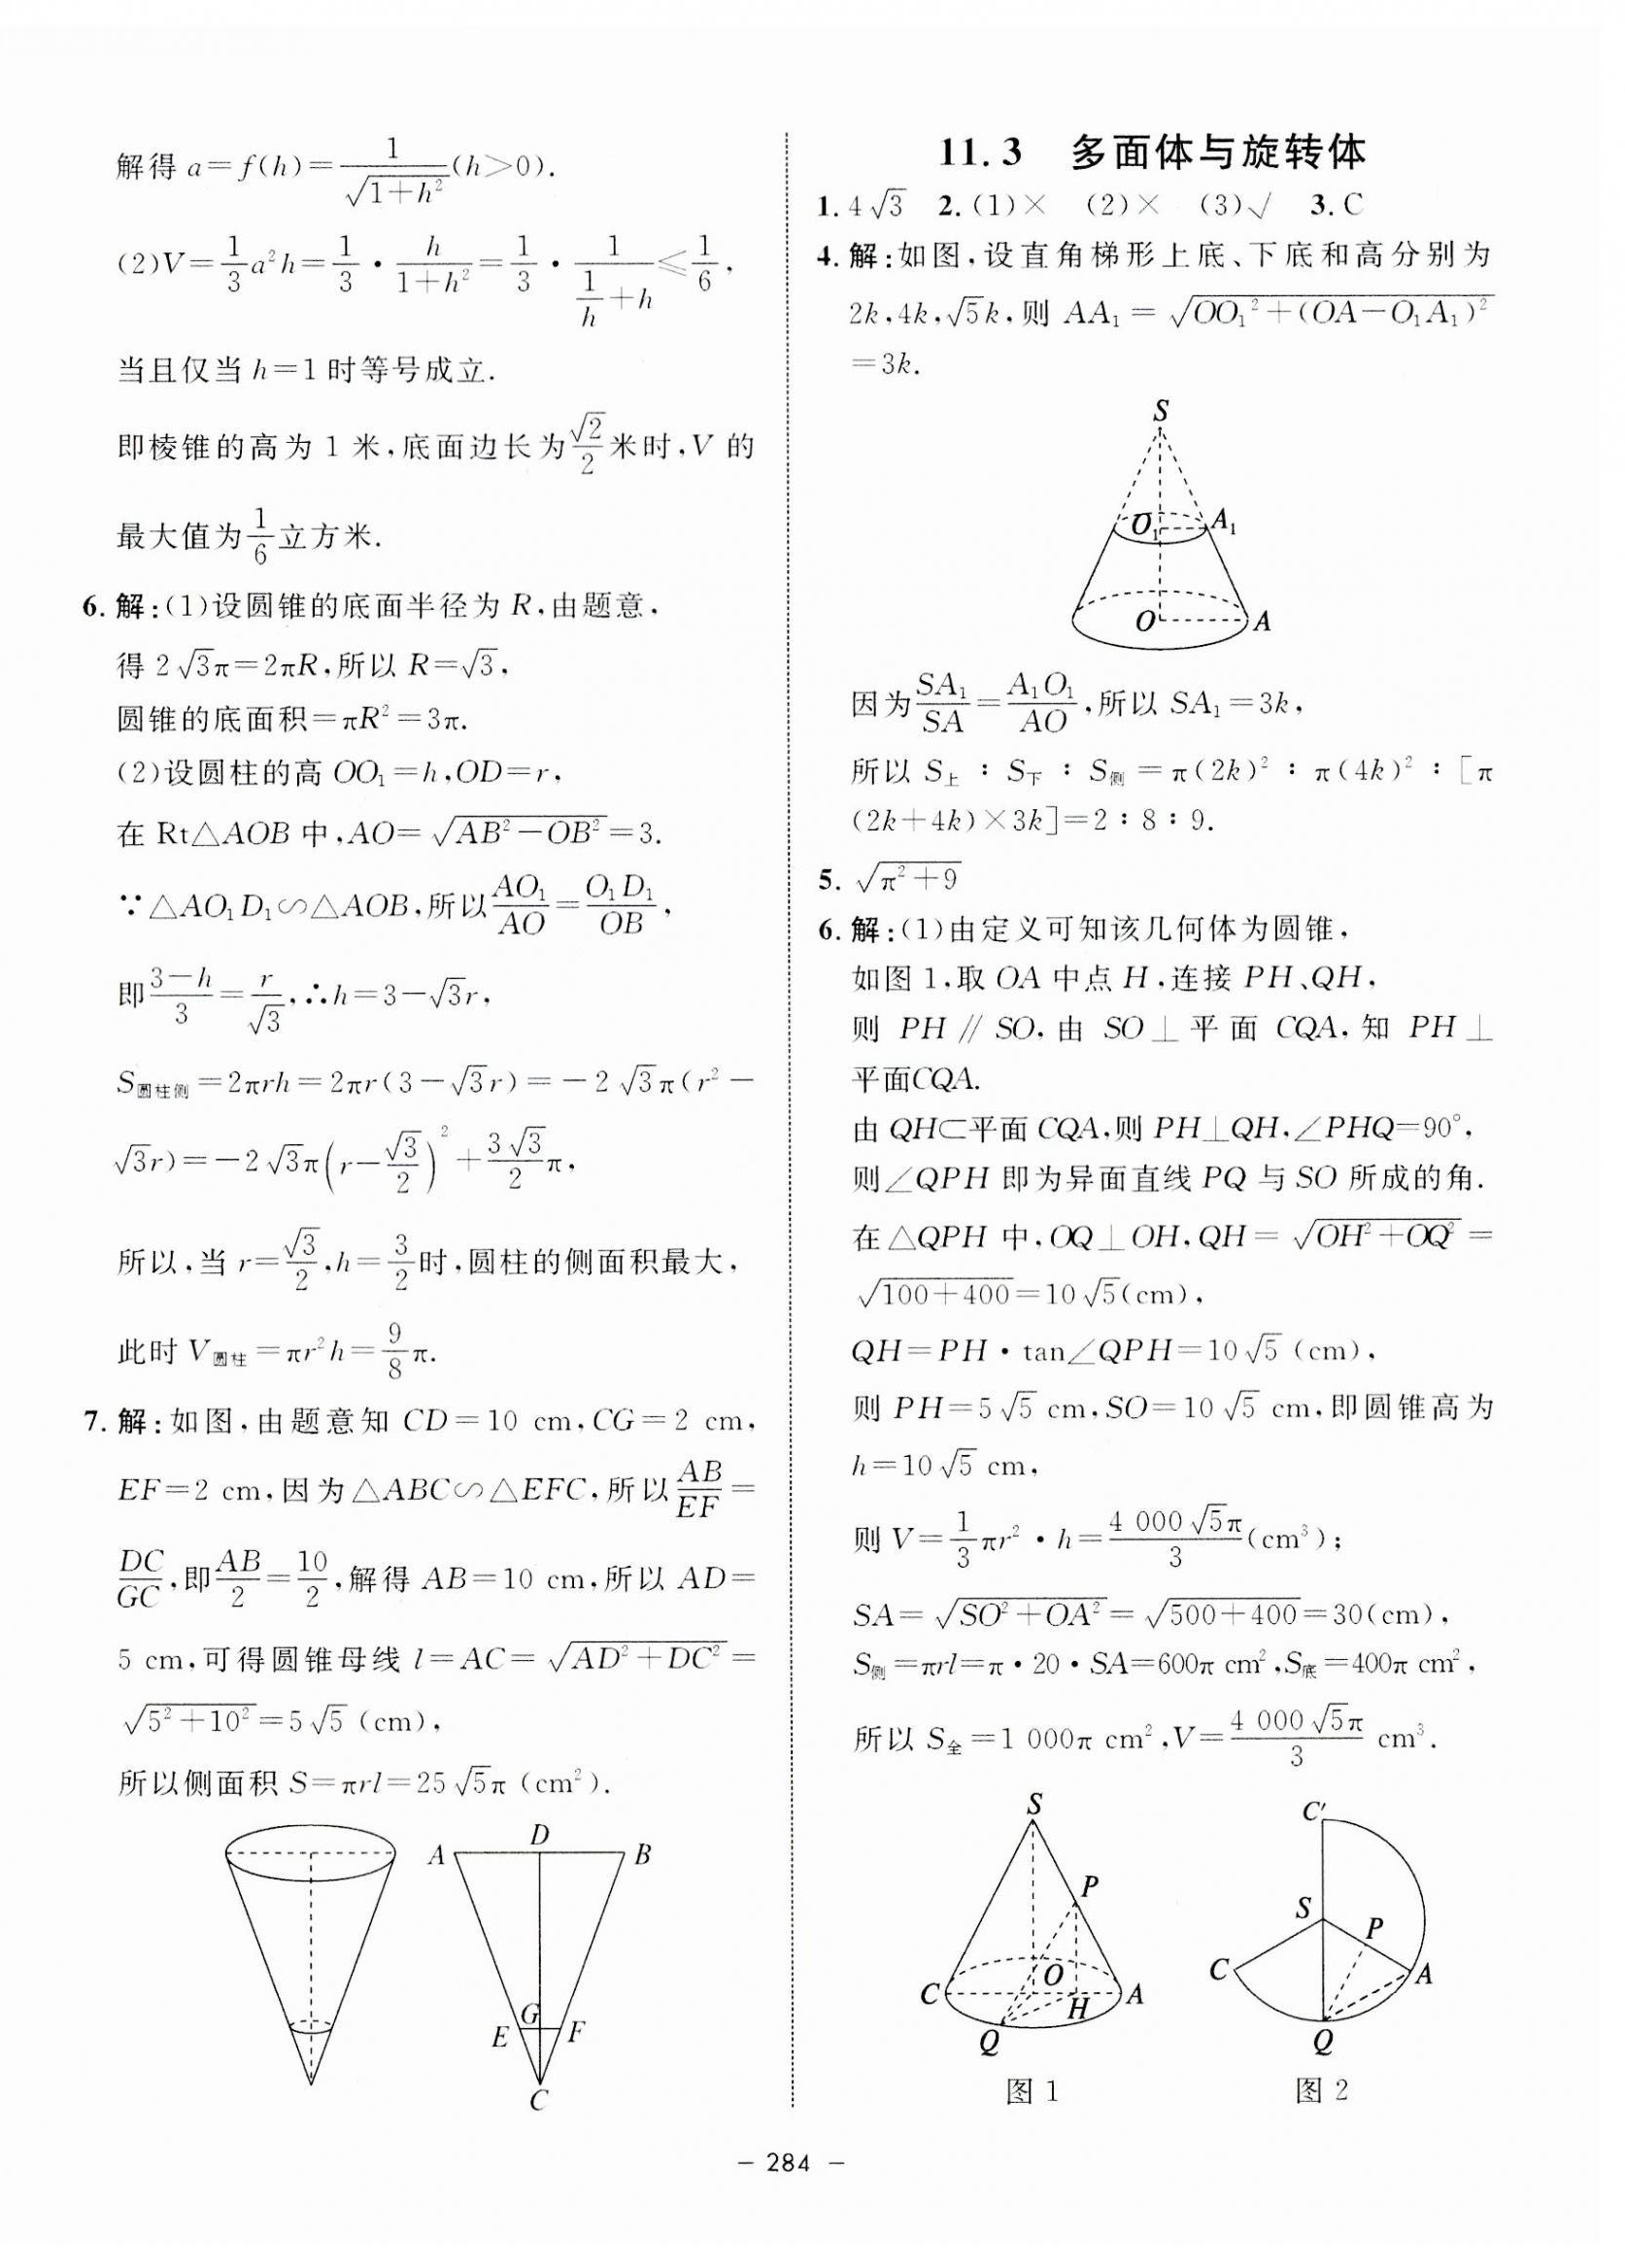 解得 a=f(h)=1/√(1+h²)(h>0).
(2)V=1/3a²h=1/3·h/(1+h²)=1/3·1/(1/h+h)≤1/6,
当且仅当 h=1 时等号成立.
即棱锥的高为 1 米,底面边长为√2/2米时,V 的
最大值为1/6立方米.
6. 解:(1)设圆锥的底面半径为 R,由题意,
得 2√3π=2πR,所以 R=√3,
圆锥的底面积=πR²=3π.
(2)设圆柱的高 OO₁=h,OD=r,
在 Rt△AOB 中,AO=√(AB²-OB²)=3.
∵△AO₁D₁∽△AOB,所以AO₁/AO=O₁D₁/OB,
即(3-h)/3=r/√3,∴h=3-√3r,
S圆柱侧=2πrh=2πr(3-√3r)=-2√3π(r²-
√3r)=-2√3π(r-√3/2)²+3√3/2π,
所以,当 r=√3/2,h=3/2时,圆柱的侧面积最大,
此时 V圆柱=πr²h=9/8π.
7. 解:如图,由题意知 CD=10 cm,CG=2 cm,
EF=2 cm,因为△ABC∽△EFC,所以AB/EF=
DC/GC,即AB/2=10/2,解得 AB=10 cm,所以 AD=
5 cm,可得圆锥母线 l=AC=√(AD²+DC²)=
√(5²+10²)=5√5 (cm),
所以侧面积 S=πrl=25√5π (cm²).
A D B
E G F
C
11.3 多面体与旋转体
1. 4√3 2. (1)× (2)× (3)√ 3. C
4. 解:如图,设直角梯形上底、下底和高分别为
2k,4k,√5k,则 AA₁=√(OO₁²+(OA-O₁A₁)²)
=3k.
S
O₁ A₁
O A
因为SA₁/SA=A₁O₁/AO,所以 SA₁=3k,
所以 S上:S下:S侧=π(2k)²:π(4k)²:[π
(2k+4k)×3k]=2:8:9.
5. √(π²+9)
6. 解:(1)由定义可知该几何体为圆锥,
如图 1,取 OA 中点 H,连接 PH、QH,
则 PH∥SO,由 SO⊥平面 CQA,知 PH⊥
平面CQA.
由 QH⊂平面 CQA,则 PH⊥QH,∠PHQ=90°,
则∠QPH 即为异面直线 PQ 与 SO 所成的角.
在△QPH 中,OQ⊥OH,QH=√(OH²+OQ²)=
√(100+400)=10√5(cm),
QH=PH·tan∠QPH=10√5 (cm),
则 PH=5√5 cm,SO=10√5 cm,即圆锥高为
h=10√5 cm,
则 V=1/3πr²·h=4 000√5π/3(cm³);
SA=√(SO²+OA²)=√(500+400)=30(cm),
S侧=πrl=π·20·SA=600π cm²,S底=400π cm²,
所以 S全=1 000π cm²,V=4 000√5π/3 cm³.
S
P
C O H A
Q
图 1
C′
S P
C A
Q
图 2
– 284 –